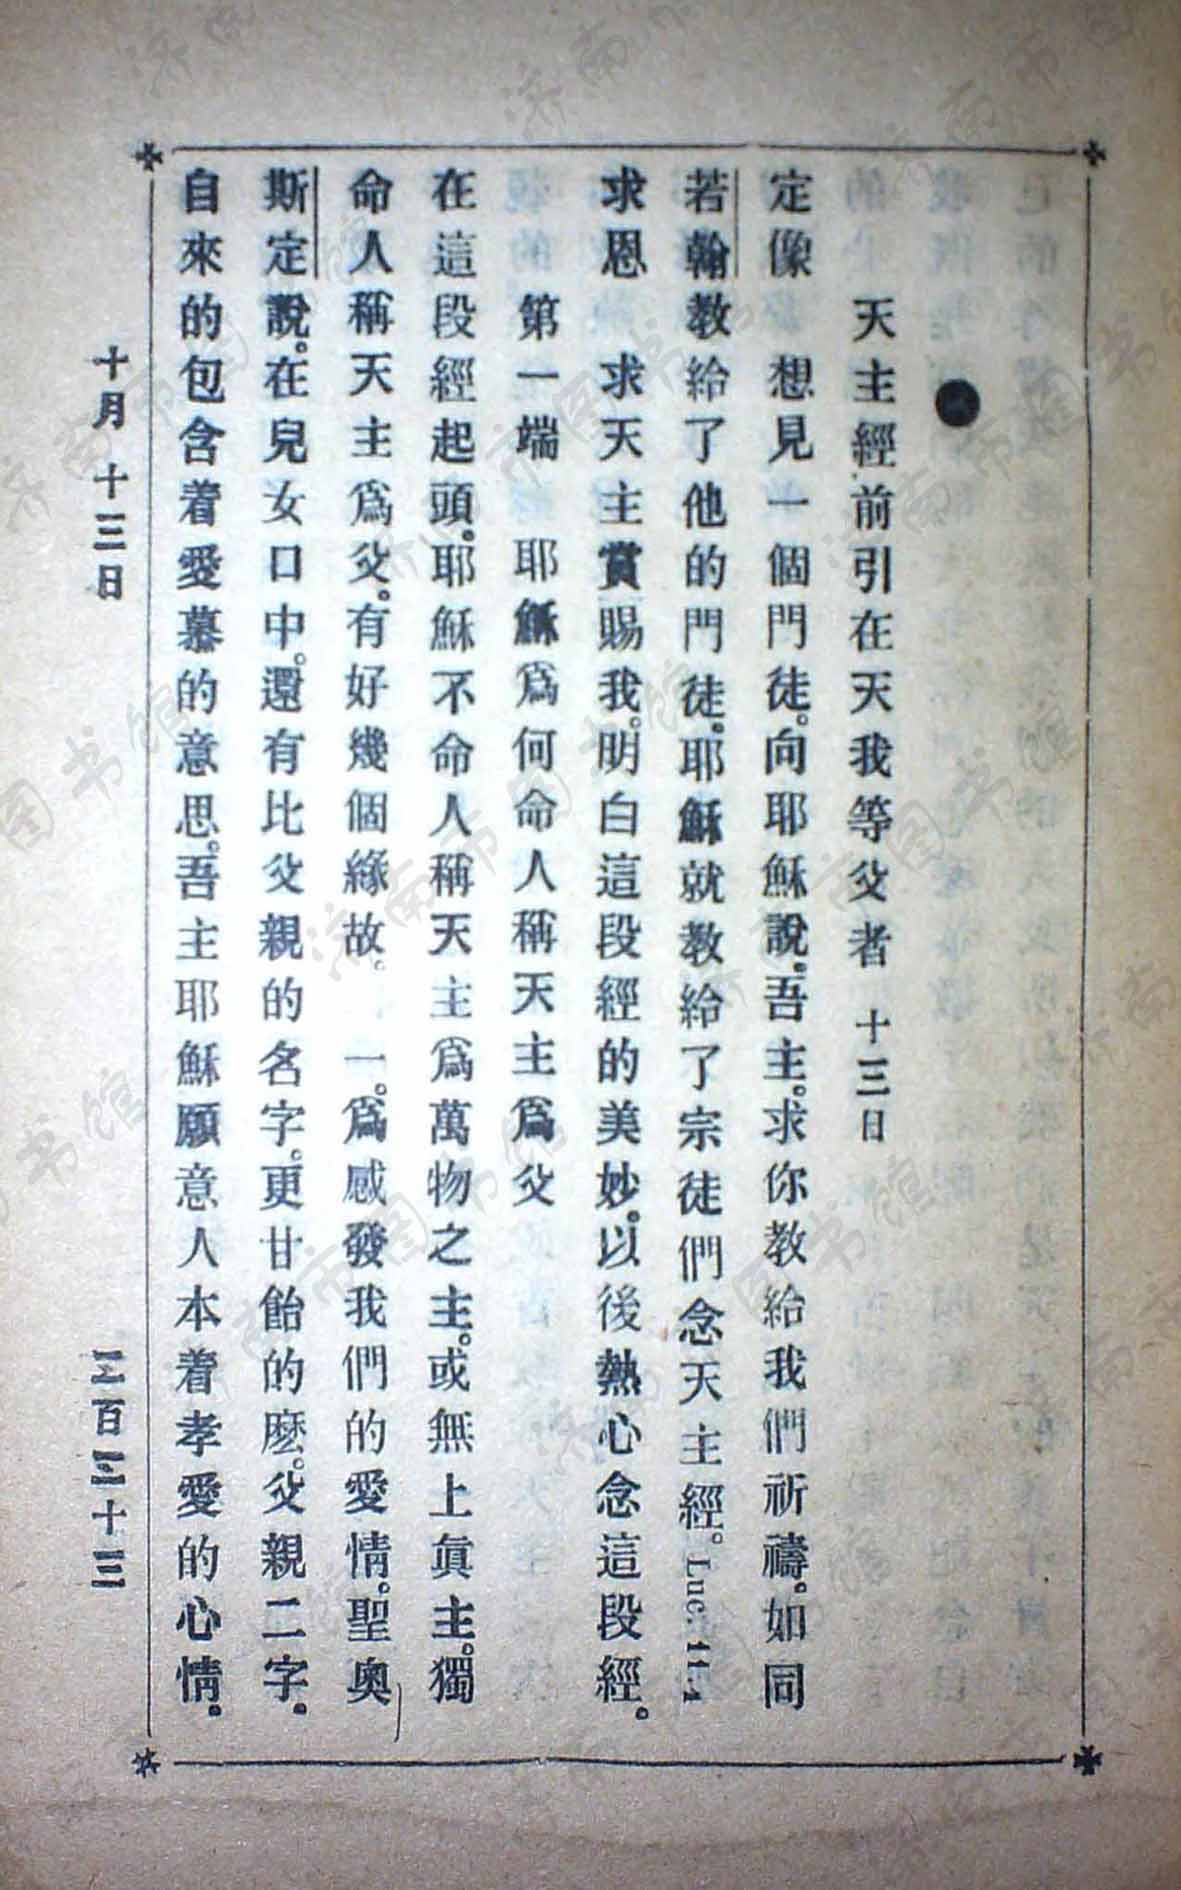 ●
天主經前引在天我等父者 十三日
定像 想見一個門徒。向耶穌說。吾主。求你教給我們祈禱。如同
若翰教給了他的門徒。耶穌就教給了宗徒們念天主經。Luc. 11.1
求恩 求天主賞賜我。明白這段經的美妙。以後熱心念這段經。
第一端 耶穌爲何命人稱天主爲父
在這段經起頭。耶穌不命人稱天主爲萬物之主。或無上眞主。獨
命人稱天主爲父。有好幾個緣故。一。爲感發我們的愛情。聖奧
斯定說。在兒女口中。還有比父親的名字。更甘飴的麽。父親二字。
自來的包含着愛慕的意思。吾主耶穌願意人本着孝愛的心情。
十月 十三日 三百三十三
济南市图书馆